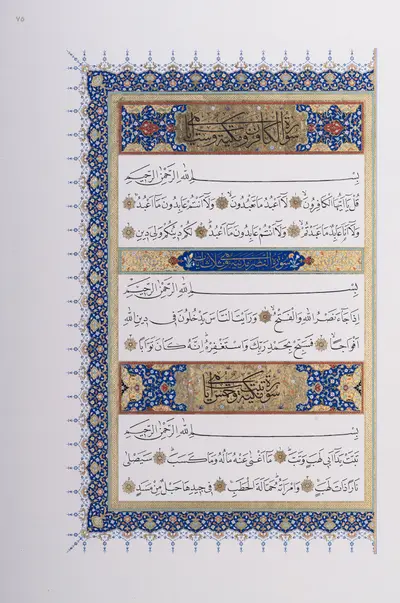 ٧٥
سورة الكافرون مكية وهي ست آيات
بِسْمِ اللهِ الرَّحْمٰنِ الرَّحِيمِ
قُلْ يَا أَيُّهَا الْكَافِرُونَ لَا أَعْبُدُ مَا تَعْبُدُونَ وَلَا أَنْتُمْ عَابِدُونَ مَا أَعْبُدُ
وَلَا أَنَا عَابِدٌ مَا عَبَدْتُمْ وَلَا أَنْتُمْ عَابِدُونَ مَا أَعْبُدُ لَكُمْ دِينُكُمْ وَلِيَ دِينِ
سورة النصر
بِسْمِ اللهِ الرَّحْمٰنِ الرَّحِيمِ
إِذَا جَاءَ نَصْرُ اللهِ وَالْفَتْحُ وَرَأَيْتَ النَّاسَ يَدْخُلُونَ فِي دِينِ اللهِ
أَفْوَاجًا فَسَبِّحْ بِحَمْدِ رَبِّكَ وَاسْتَغْفِرْهُ إِنَّهُ كَانَ تَوَّابًا
سورة تبت مكية وهي خمس آيات
بِسْمِ اللهِ الرَّحْمٰنِ الرَّحِيمِ
تَبَّتْ يَدَا أَبِي لَهَبٍ وَتَبَّ مَا أَغْنَى عَنْهُ مَالُهُ وَمَا كَسَبَ سَيَصْلَى
نَارًا ذَاتَ لَهَبٍ وَامْرَأَتُهُ حَمَّالَةَ الْحَطَبِ فِي جِيدِهَا حَبْلٌ مِنْ مَسَدٍ